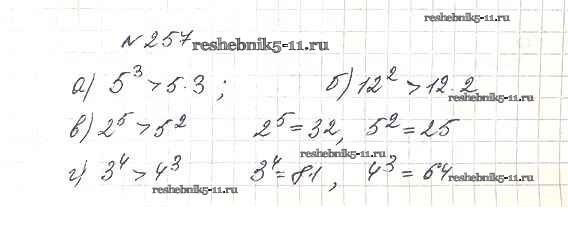 reshebnik5-11.ru
№257 reshebnik5-11.ru
а) 5³ > 5·3 ; б) 12² > 12·2
reshebnik5-11.ru
в) 2⁵ > 5² 2⁵ = 32, 5² = 25
reshebnik5-11.ru
г) 3⁴ > 4³ 3⁴ = 81, 4³ = 64
reshebnik5-11.ru reshebnik5-11.ru